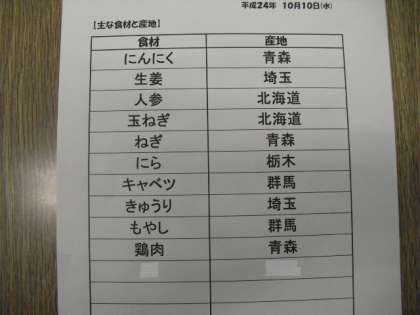 平成24年 10月10日(水)
【主な食材と産地】
食材 産地
にんにく 青森
生姜 埼玉
人参 北海道
玉ねぎ 北海道
ねぎ 青森
にら 栃木
キャベツ 群馬
きゅうり 埼玉
もやし 群馬
鶏肉 青森